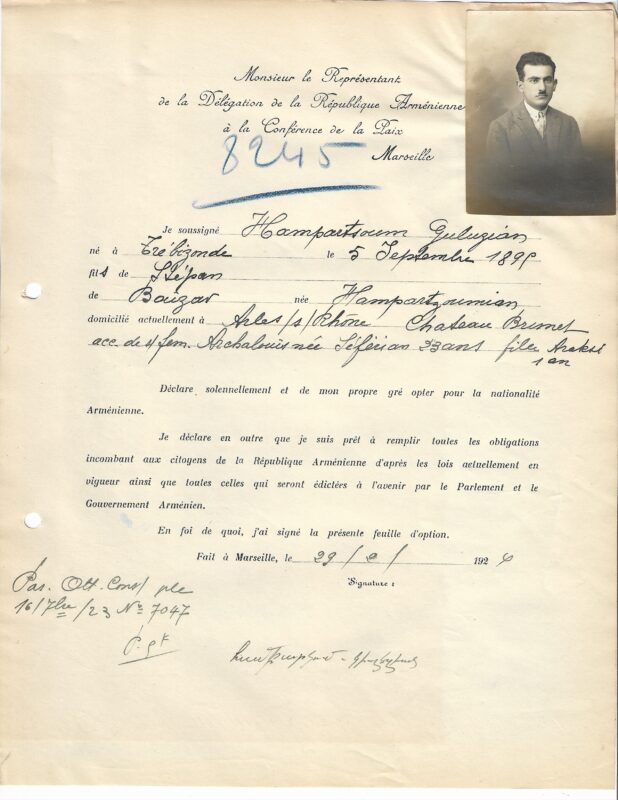 Monsieur le Représentant
de la Délégation de la République Arménienne
à la Conférence de la Paix
8245
Marseille
Je soussigné Hampartsoum Guluzian
né à Trébizonde le 5 Septembre 189
fils de Stépan
de Baüzar née Hampartzoumian
domicilié actuellement à Arles s/Rhône Chateau Brunet
acc. de s/ fem. Archalouis née Séférian 23 ans fille Araksi
1 an
Déclare solennellement et de mon propre gré opter pour la nationalité
Arménienne.
Je déclare en outre que je suis prêt à remplir toutes les obligations
incombant aux citoyens de la République Arménienne d'après les lois actuellement en
vigueur ainsi que toutes celles qui seront édictées à l'avenir par le Parlement et le
Gouvernement Arménien.
En foi de quoi, j'ai signé la présente feuille d'option.
Fait à Marseille, le 29/2/ 1924
Signature :
Pas. Ott. Const/ple
16/7bre/23 Nº 7047